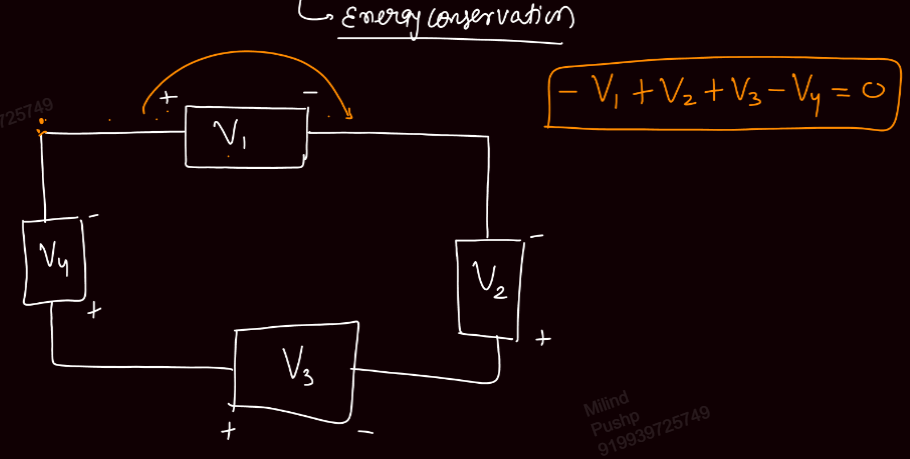 Energy conservation
- V₁ + V₂ + V₃ - V₄ = 0
+ -
V₁
725749
-
V₄
+
-
V₂
+
V₃
+ -
Milind
Pushp
919939725749